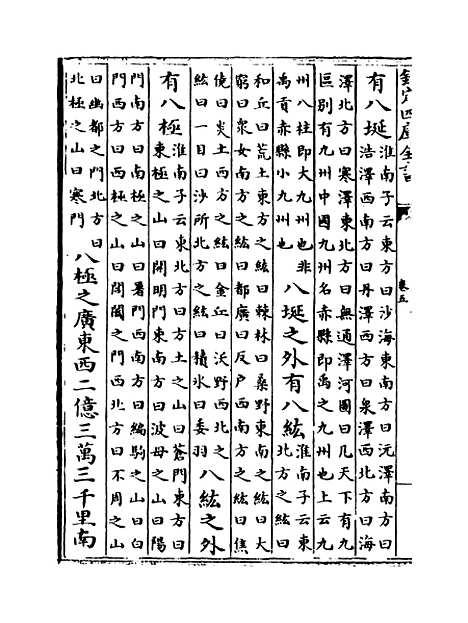 欽定四庫全書
卷五
有八埏
淮南子云東方曰沙海東南方曰沅澤南方曰
浩澤西南方曰丹澤西方曰泉澤西北方曰海
澤北方曰寒澤東北方曰無通澤河圖曰凡天下有九
區别有九州中國九州名赤縣即禹之九州也上云九
州八柱即大九州也非
禹貢赤縣小九州也
八埏之外有八紘
淮南子云東
北方之紘曰
和丘曰荒土東方之紘曰棘林曰桑野東南之紘曰大
窮曰衆女南方之紘曰都廣曰反戶西南方之紘曰焦
僥曰炎土西方之紘曰金丘曰沃野西北之
紘曰一目曰沙所北方之紘曰積冰曰委羽
八紘之外
有八極
淮南子云東北方曰方土之山曰蒼門東方曰
東極之山曰開明門東南方曰波母之山曰陽
門南方曰南極之山曰暑門西南方曰編駒之山曰白
門西方曰西極之山曰閶闔之門西北方曰不周之山
曰幽都之門北方曰
北極之山曰寒門
八極之廣東西二億三萬三千里南